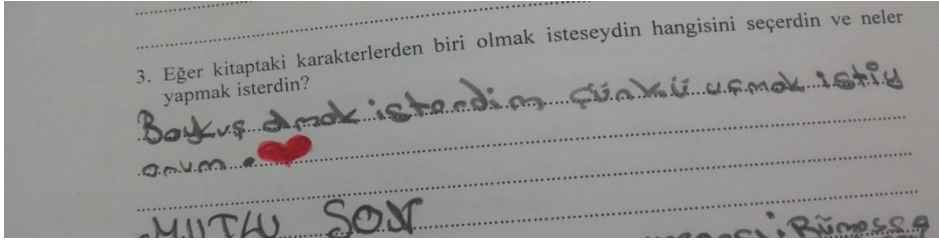 3. Eğer kitaptaki karakterlerden biri olmak isteseydin hangisini seçerdin ve neler
yapmak isterdin?
Baykuş olmak isterdim çünkü uçmak istiy
orum.
MUTLU SON